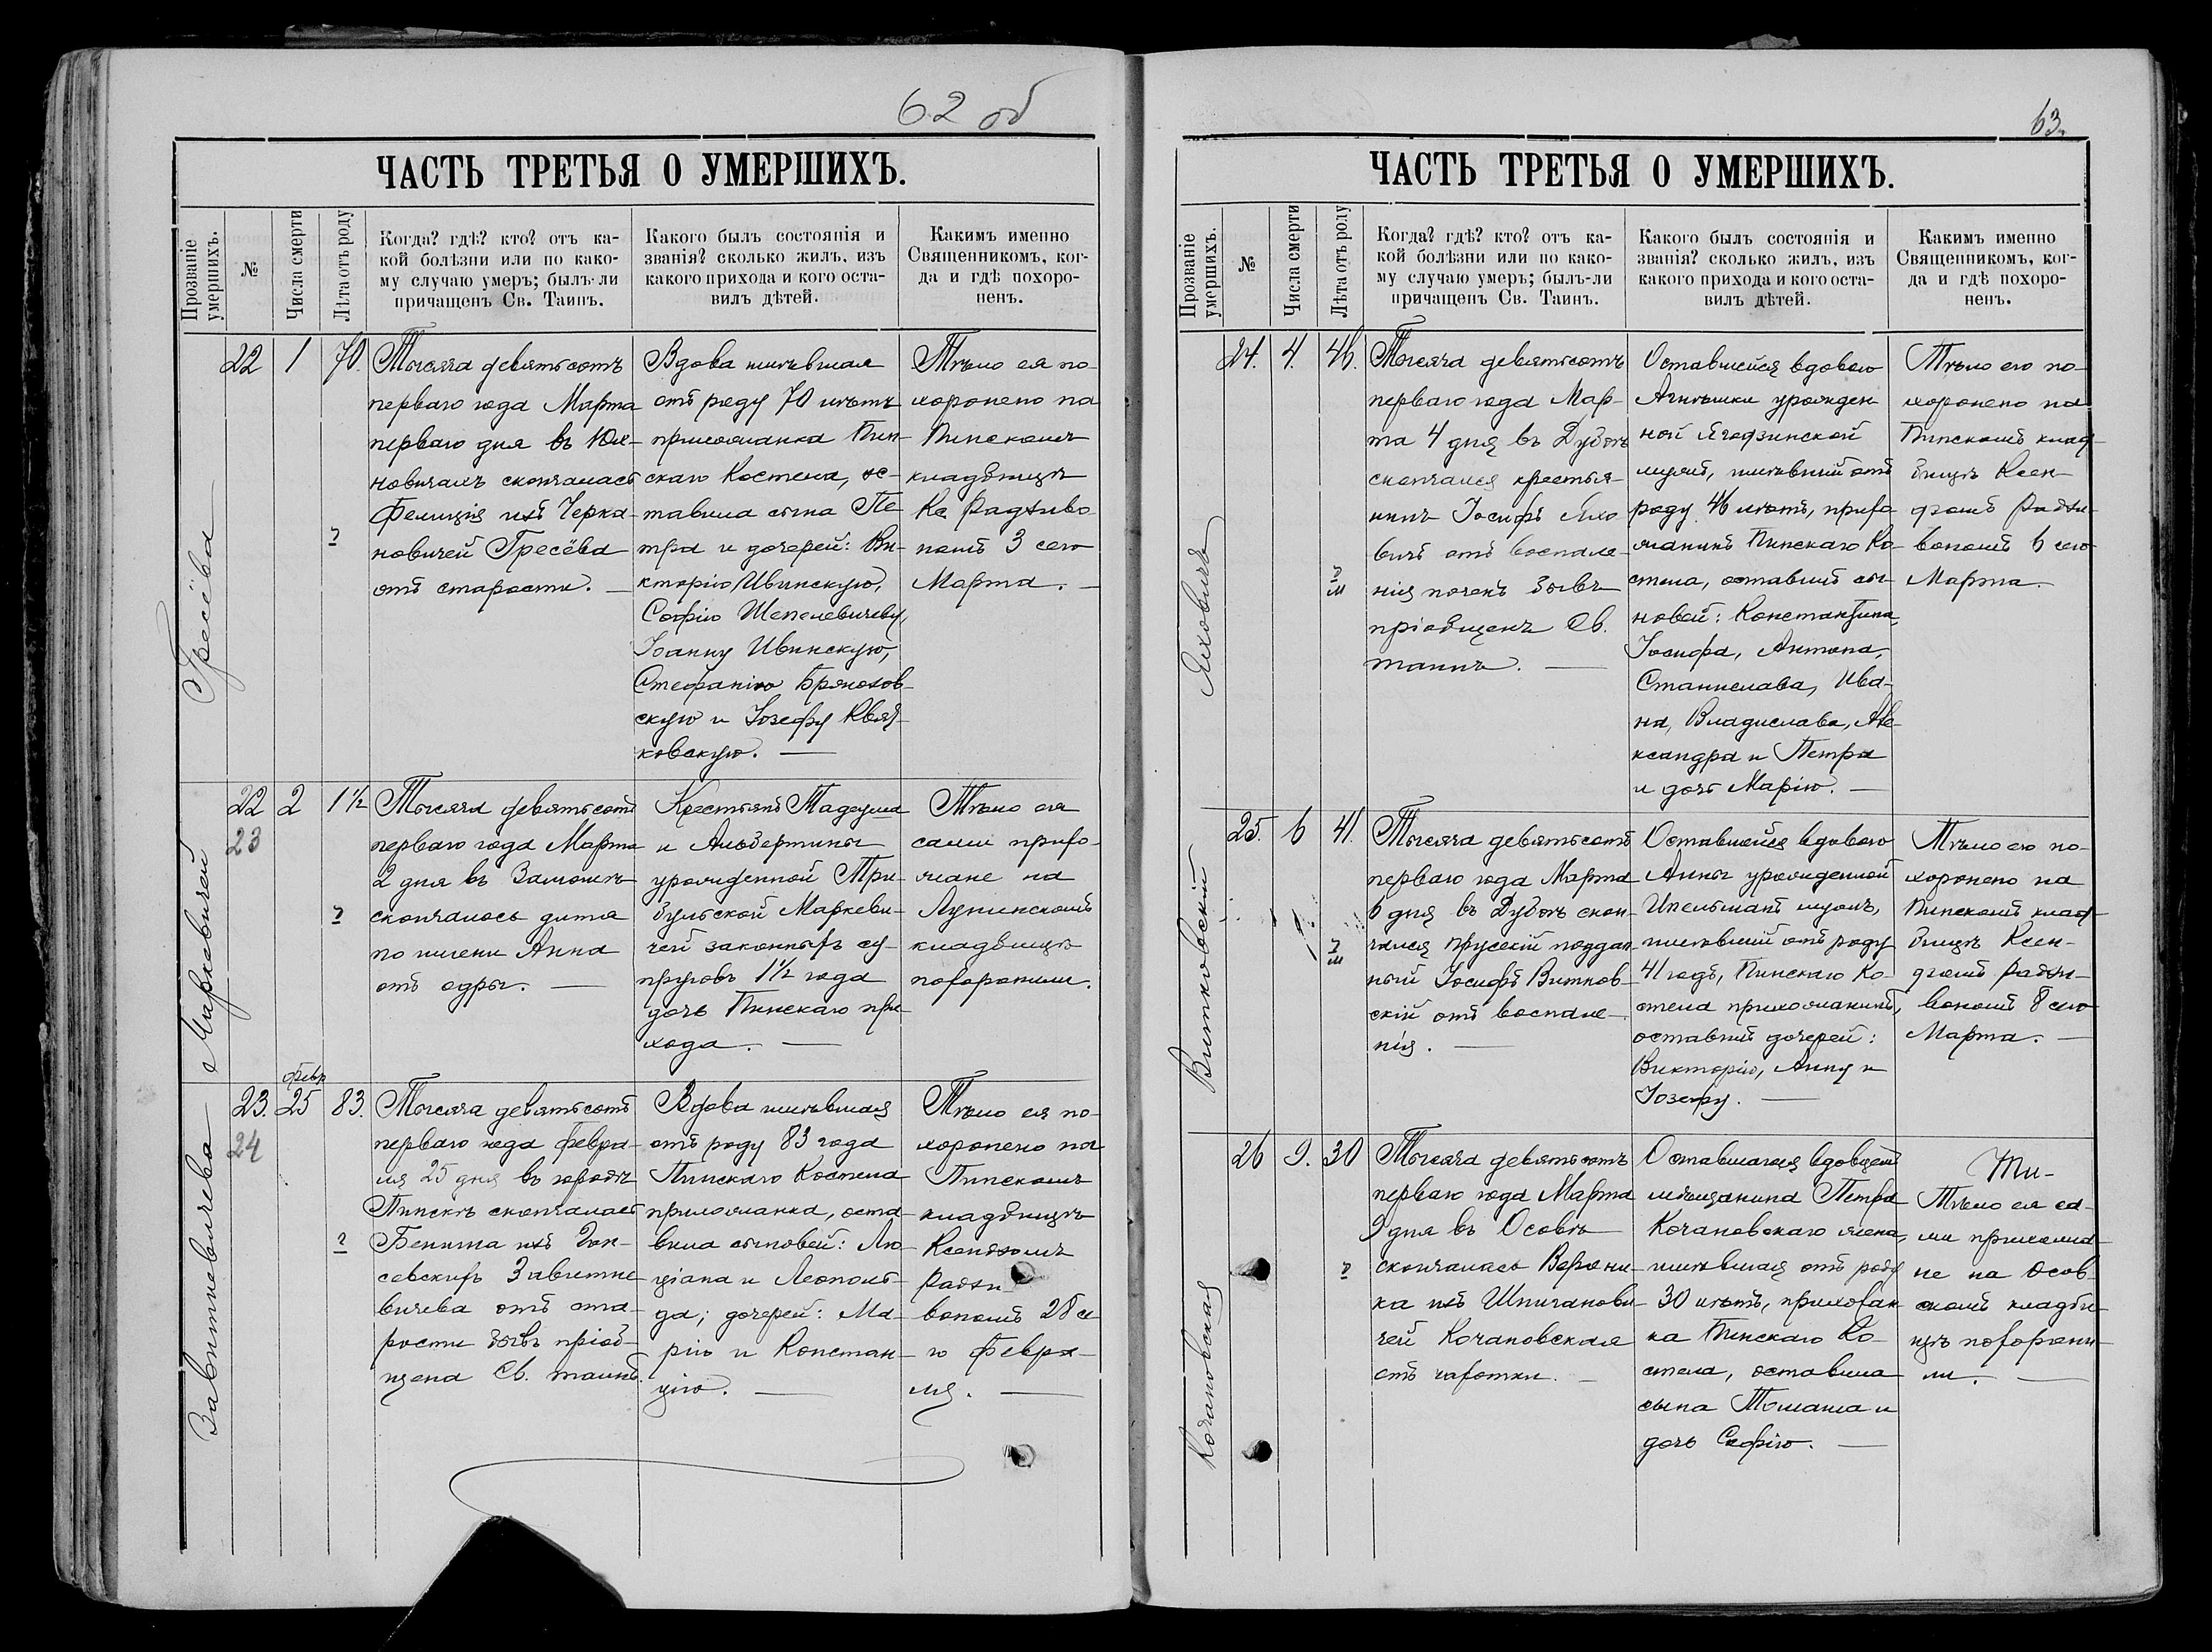 62 об
ЧАСТЬ ТРЕТЬЯ О УМЕРШИХЪ.
Прозваніе умершихъ.
№
Числа смерти
Лѣта отъ роду
Когда? гдѣ? кто? отъ ка-
кой болѣзни или по како-
му случаю умеръ; былъ-ли
причащенъ Св. Таинъ.
Какого былъ состоянія и
званія? сколько жилъ, изъ
какого прихода и кого оста-
вилъ дѣтей.
Какимъ именно
Священникомъ, ког-
да и гдѣ похоро-
ненъ.
Гресёва
22
1
70.
Тысяча девятьсотъ
перваго года Марта
перваго дня въ Юх-
новичахъ скончалась
Фелиція изъ Черка-
новичей Гресёва
отъ старости. —
Вдова жившая
отъ роду 70 лѣтъ
прихожанка Пин-
скаго Костела, ос-
тавила сына Пе-
тра и дочерей: Ви-
кторію Ивинскую,
Софію Шепелевичеву,
Іоанну Ивинскую,
Стефанію
скую и Іозефу Квят-
ковскую. —
Тѣло ея по-
хоронено на
Пинскомъ
кладбищѣ
Кс. Радзиво-
номъ 3 сего
Марта. —
Маркевичей
22
23
2
1½
Тысяча девятьсотъ
перваго года Марта
2 дня въ Замошьѣ
скончалось дитя
по имени Анна
отъ одры. —
Крестьянъ Тадеуша
и Альбертины
урожденной Три-
бульской Маркеви-
чей законныхъ су-
пруговъ 1½ года
дочь Пинскаго при-
хода. —
Тѣло ея
сами прихо-
жане на
Лунинскомъ
кладбищѣ
похоронили.
Завитневичева
23.
24
Февр
25
83.
Тысяча девятьсотъ
перваго года Февра-
ля 25 дня въ городѣ
Пинскѣ скончалась
Бенигна изъ
севскихъ Завитне-
вичева отъ ста-
рости бывъ пріоб-
щена Св. таинъ.
Вдова жившая
отъ роду 83 года
Пинскаго Костела
прихожанка, оста-
вила сыновей: Лю-
ціана и Леополь-
да; дочерей: Ма-
рію и Констан-
цію. —
Тѣло ея по-
хоронено на
Пинскомъ
кладбищѣ
Ксендзомъ
Радзи-
вономъ 28 се-
го Февра-
ля. —
63.
ЧАСТЬ ТРЕТЬЯ О УМЕРШИХЪ.
Прозваніе умершихъ.
№
Числа смерти
Лѣта отъ роду
Когда? гдѣ? кто? отъ ка-
кой болѣзни или по како-
му случаю умеръ; былъ-ли
причащенъ Св. Таинъ.
Какого былъ состоянія и
званія? сколько жилъ, изъ
какого прихода и кого оста-
вилъ дѣтей.
Какимъ именно
Священникомъ, ког-
да и гдѣ похоро-
ненъ.
Яховичъ
24.
4.
46.
Тысяча девятьсотъ
перваго года Мар-
та 4 дня въ Дубоѣ
скончался крестья-
нинъ Іосифъ Яхо-
вичъ отъ воспале-
нія почекъ бывъ
пріобщенъ Св.
таинъ. —
Оставшейся вдовою
Агнѣшки урожден-
ной Ягодзинской
мужъ, жившій отъ
роду 46 лѣтъ, прихо-
жанинъ Пинскаго Ко-
стела, оставилъ сы-
новей: Константина,
Іосифа, Антона,
Станислава, Ива-
на, Владислава, Але-
ксандра и Петра
и дочь Марію. —
Тѣло его по-
хоронено на
Пинскомъ клад-
бищѣ Ксен-
дзомъ Радзи-
вономъ 6 сего
Марта. —
Витковскій
25.
6
41.
Тысяча девятьсотъ
перваго года Марта
6 дня въ Дубоѣ скон-
чался Прусскій поддан-
ный Іосифъ Витков-
скій отъ воспале-
нія. —
Оставшейся вдовою
Анны урожденной
мужъ,
жившій отъ роду
41 годъ, Пинскаго Ко-
стела прихожанинъ,
оставилъ дочерей:
Викторію, Анну и
Іозефу. —
Тѣло его по-
хоронено на
Пинскомъ клад-
бищѣ Ксен-
дзомъ Радзи-
вономъ 8 сего
Марта. —
Кочановская
26
9.
30
Тысяча девятьсотъ
перваго года Марта
9 дня въ Осовѣ
скончалась Верони-
ка изъ Шпиганови-
чей Кочановская
отъ чахотки. —
Оставшагося вдовцемъ
мѣщанина Петра
Кочановскаго жена,
жившая отъ роду
30 лѣтъ, прихожан-
ка Пинскаго Ко-
стела, оставила
сына Томаша и
дочь Софію. —
Тѣло ея са-
ми прихожа-
не на Осов-
скомъ кладби-
щѣ похорони-
ли. —